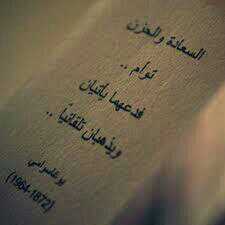 السعادة والحزن
توأم ..
فدعهما يأتيان
ويذهبان تلقائياً ..
(1964-1872)